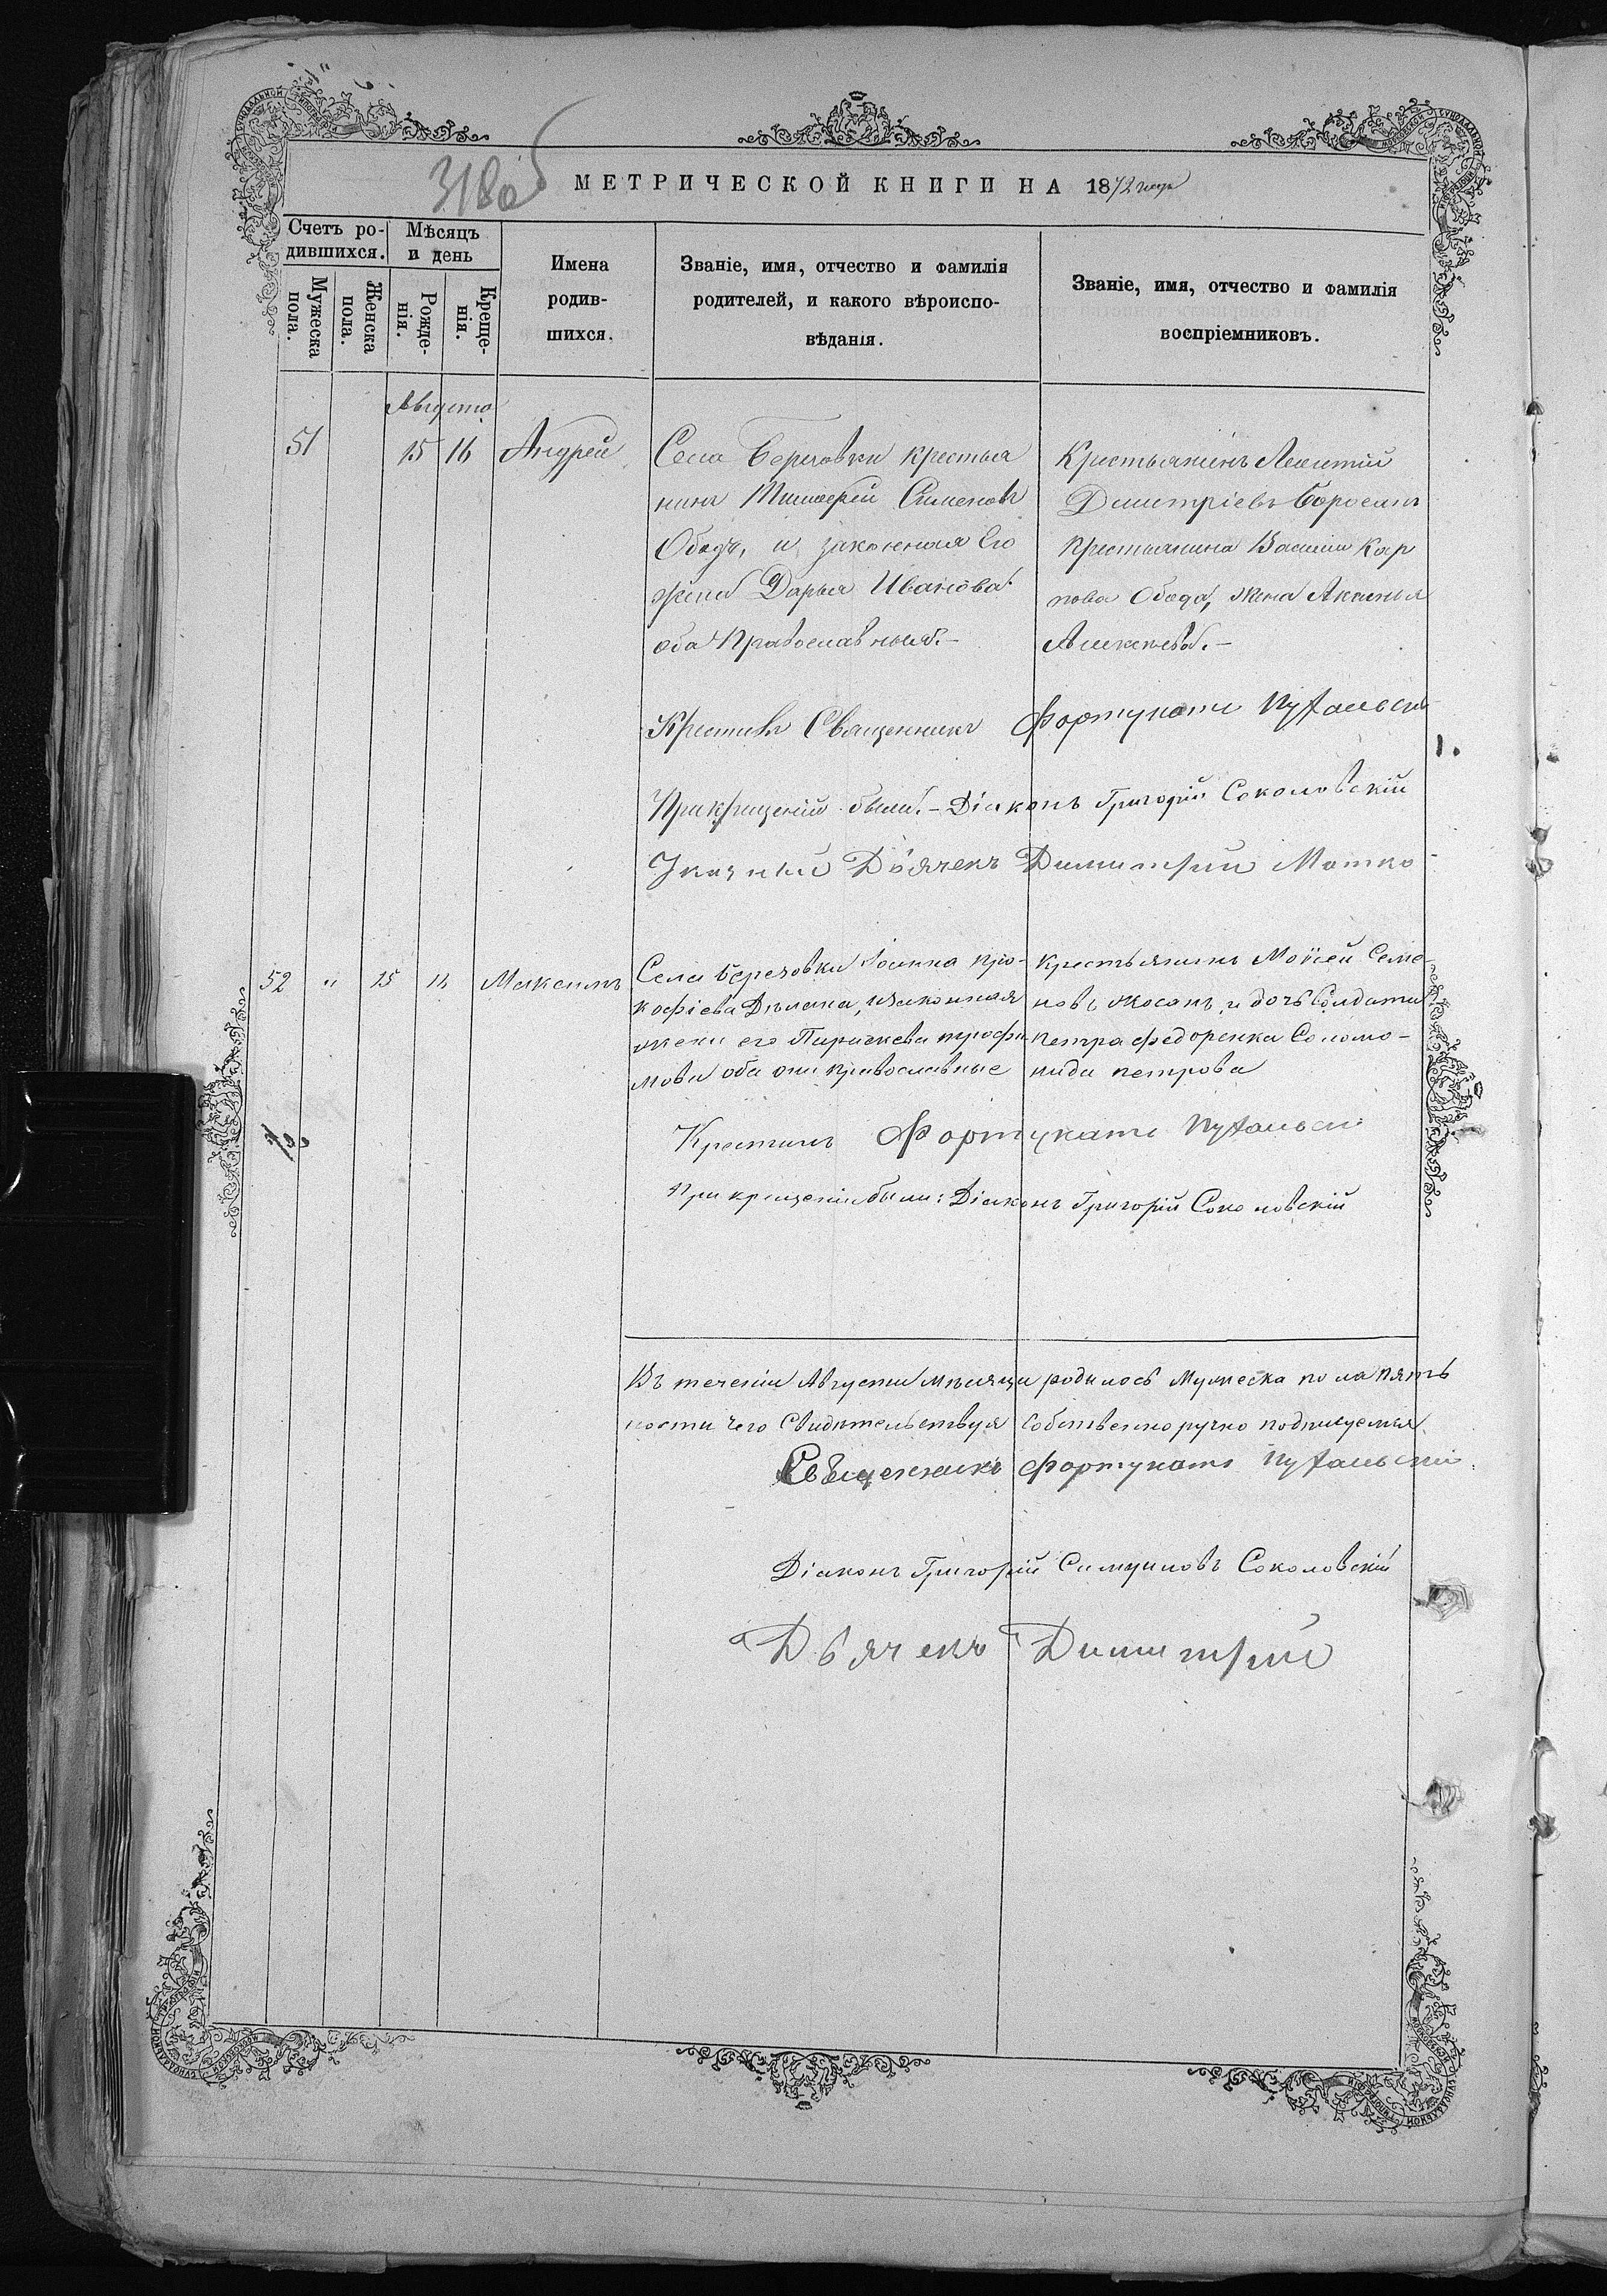 318об
МЕТРИЧЕСКОЙ КНИГИ НА 1872 годъ
Счетъ ро-
дившихся.
Мѣсяцъ
и день
Мужеска
пола.
Женска
пола.
Рожде-
нія.
Креще-
нія.
Имена
родив-
шихся.
Званіе, имя, отчество и фамилія
родителей, и какого вѣроиспо-
вѣданія.
Званіе, имя, отчество и фамилія
воспріемниковъ.
Августа
51 15 16 Андрей
Села Березовки крестья
нинъ Тимофей Симеоновъ
Обадъ, и законная Его
жена Дарья Иванова
оба Православныя.-
Крестьянинъ Леонтій
Димитріевъ
Крестьянина Василія Кар
пова Обада, жена Аксенья
Алексѣева.-
Крестилъ Священникъ Фортунатъ Путальскій
1.
При крещеніи были:- Діаконъ Григорій Соколовскій
Указный Дьячекъ Димитрій
52 " 15 Максимъ
Села Березовки Іоанна Про-
кофіева, и законная
жена его Параскева трофи
мова оба они православные
Крестьянинъ Мойсей Семе-
новъ, и дочь Солдата
Петра федоренка Соломо-
нида петрова
Крестилъ Фортунатъ Путальскі
При крещеніи были: Діаконъ Григорій Соколовскій
Въ теченіи Августа мѣсяца родилось мужеска пола пять
ности чего Свидѣтельствуя Собственноручно подписуемся
Священникъ Фортунатъ Путальскій
Діаконъ Григорій Самуиловъ Соколовскій
Дьячекъ Димитрій